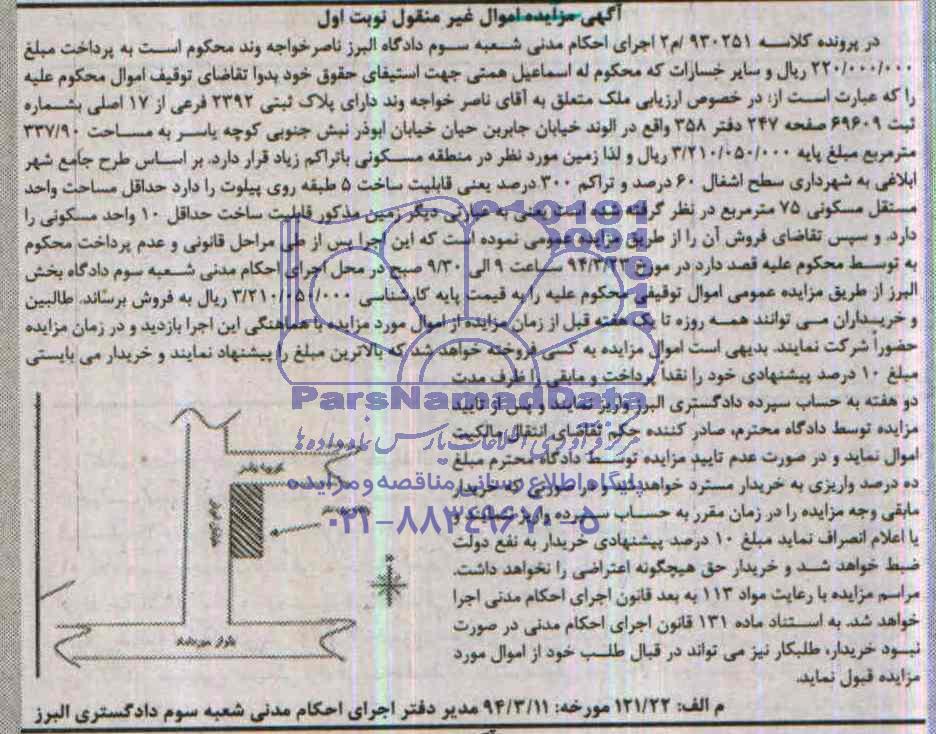 آگهی مزایده اموال غیر منقول نوبت اول
در پرونده کلاسه ۹۳۰۲۵۱ /م۲ اجرای احکام مدنی شعبه سوم دادگاه البرز ناصرخواجه وند محکوم است به پرداخت مبلغ
۲۲۰/۰۰۰/۰۰۰ ریال و سایر خسارات که محکوم له اسماعیل همتی جهت استیفای حقوق خود بدوا تقاضای توقیف اموال محکوم علیه
را که عبارت است از: در خصوص ارزیابی ملک متعلق به آقای ناصر خواجه وند دارای پلاک ثبتی ۲۳۹۲ فرعی از ۱۷ اصلی بشماره
ثبت ۶۹۶۰۹ صفحه ۲۴۷ دفتر ۳۵۸ واقع در الوند خیابان جابربن حیان خیابان ابوذر نبش جنوبی کوچه یاسر به مساحت ۳۳۷/۹۰
مترمربع مبلغ پایه ۳/۲۱۰/۰۵۰/۰۰۰ ریال و لذا زمین مورد نظر در منطقه مسکونی باتراکم زیاد قرار دارد. بر اساس طرح جامع شهر
ابلاغی به شهرداری سطح اشغال ۶۰ درصد و تراکم ۳۰۰ درصد یعنی قابلیت ساخت ۵ طبقه روی پیلوت را دارد حداقل مساحت واحد
مستقل مسکونی ۷۵ مترمربع در نظر گرفته شده است یعنی به عبارتی دیگر زمین مذکور قابلیت ساخت حداقل ۱۰ واحد مسکونی را
دارد. و سپس تقاضای فروش آن را از طریق مزایده عمومی نموده است که این اجرا پس از طی مراحل قانونی و عدم پرداخت محکوم
به توسط محکوم علیه قصد دارد در مورخ ۹۴/۳/۲۳ ساعت ۹ الی ۹/۳۰ صبح در محل اجرای احکام مدنی شعبه سوم دادگاه بخش
البرز از طریق مزایده عمومی اموال توقیفی محکوم علیه را به قیمت پایه کارشناسی ۳/۲۱۰/۰۵۰/۰۰۰ ریال به فروش برساند. طالبین
و خریداران می توانند همه روزه تا یک هفته قبل از زمان مزایده از اموال مورد مزایده با هماهنگی این اجرا بازدید و در زمان مزایده
حضوراً شرکت نمایند. بدیهی است اموال مزایده به کسی فروخته خواهد شد که بالاترین مبلغ را پیشنهاد نمایند و خریدار می بایستی
مبلغ ۱۰ درصد پیشنهادی خود را نقداً پرداخت و مابقی را ظرف مدت
دو هفته به حساب سپرده دادگستری البرز واریز نمایند و پس از تایید
مزایده توسط دادگاه محترم، صادر کننده حکم تقاضای انتقال مالکیت
اموال نماید و در صورت عدم تایید مزایده توسط دادگاه محترم مبلغ
ده درصد واریزی به خریدار مسترد خواهد شد و در صورتی که خریدار
مابقی وجه مزایده را در زمان مقرر به حساب سپرده واریز ننماید و
یا اعلام انصراف نماید مبلغ ۱۰ درصد پیشنهادی خریدار به نفع دولت
ضبط خواهد شد و خریدار حق هیچگونه اعتراضی را نخواهد داشت.
مراسم مزایده با رعایت مواد ۱۱۳ به بعد قانون اجرای احکام مدنی اجرا
خواهد شد. به استناد ماده ۱۳۱ قانون اجرای احکام مدنی در صورت
نبود خریدار، طلبکار نیز می تواند در قبال طلب خود از اموال مورد
مزایده قبول نماید.
م الف: ۱۲۱/۲۲ مورخه: ۹۴/۳/۱۱ مدیر دفتر اجرای احکام مدنی شعبه سوم دادگستری البرز
ParsNamadData
مرکز فرآوری اطلاعات پارس نماد داده ها
پایگاه اطلاع رسانی مناقصه و مزایده
۰۲۱-۸۸۳۴۹۶۷۰-۵